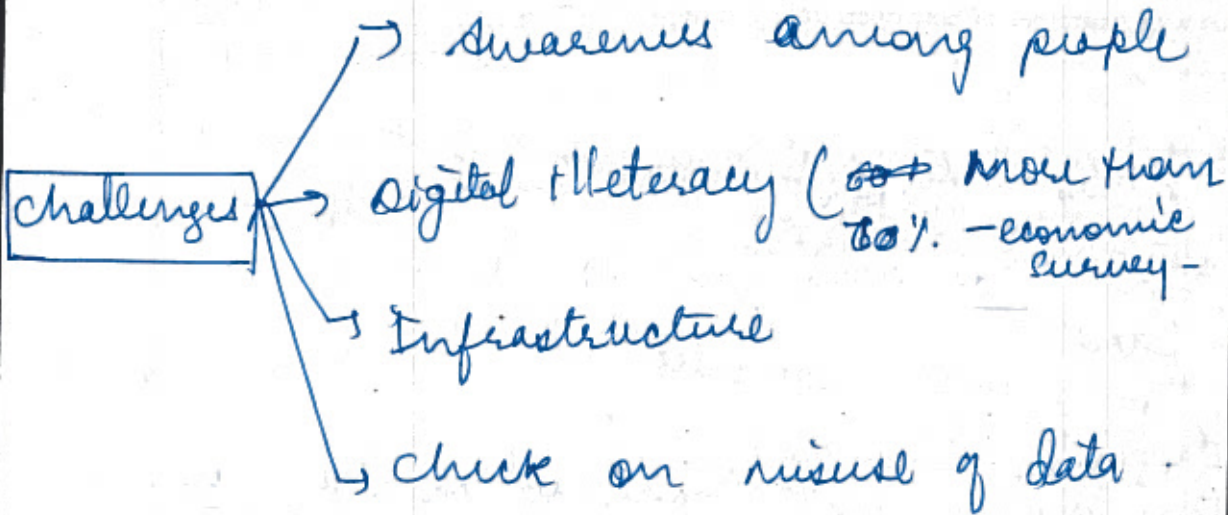 → Awareness among people
challenges
→ Digital illeteracy ( more than
60%. - economic
survey -
→ Infrastructure
→ check on misuse of data.